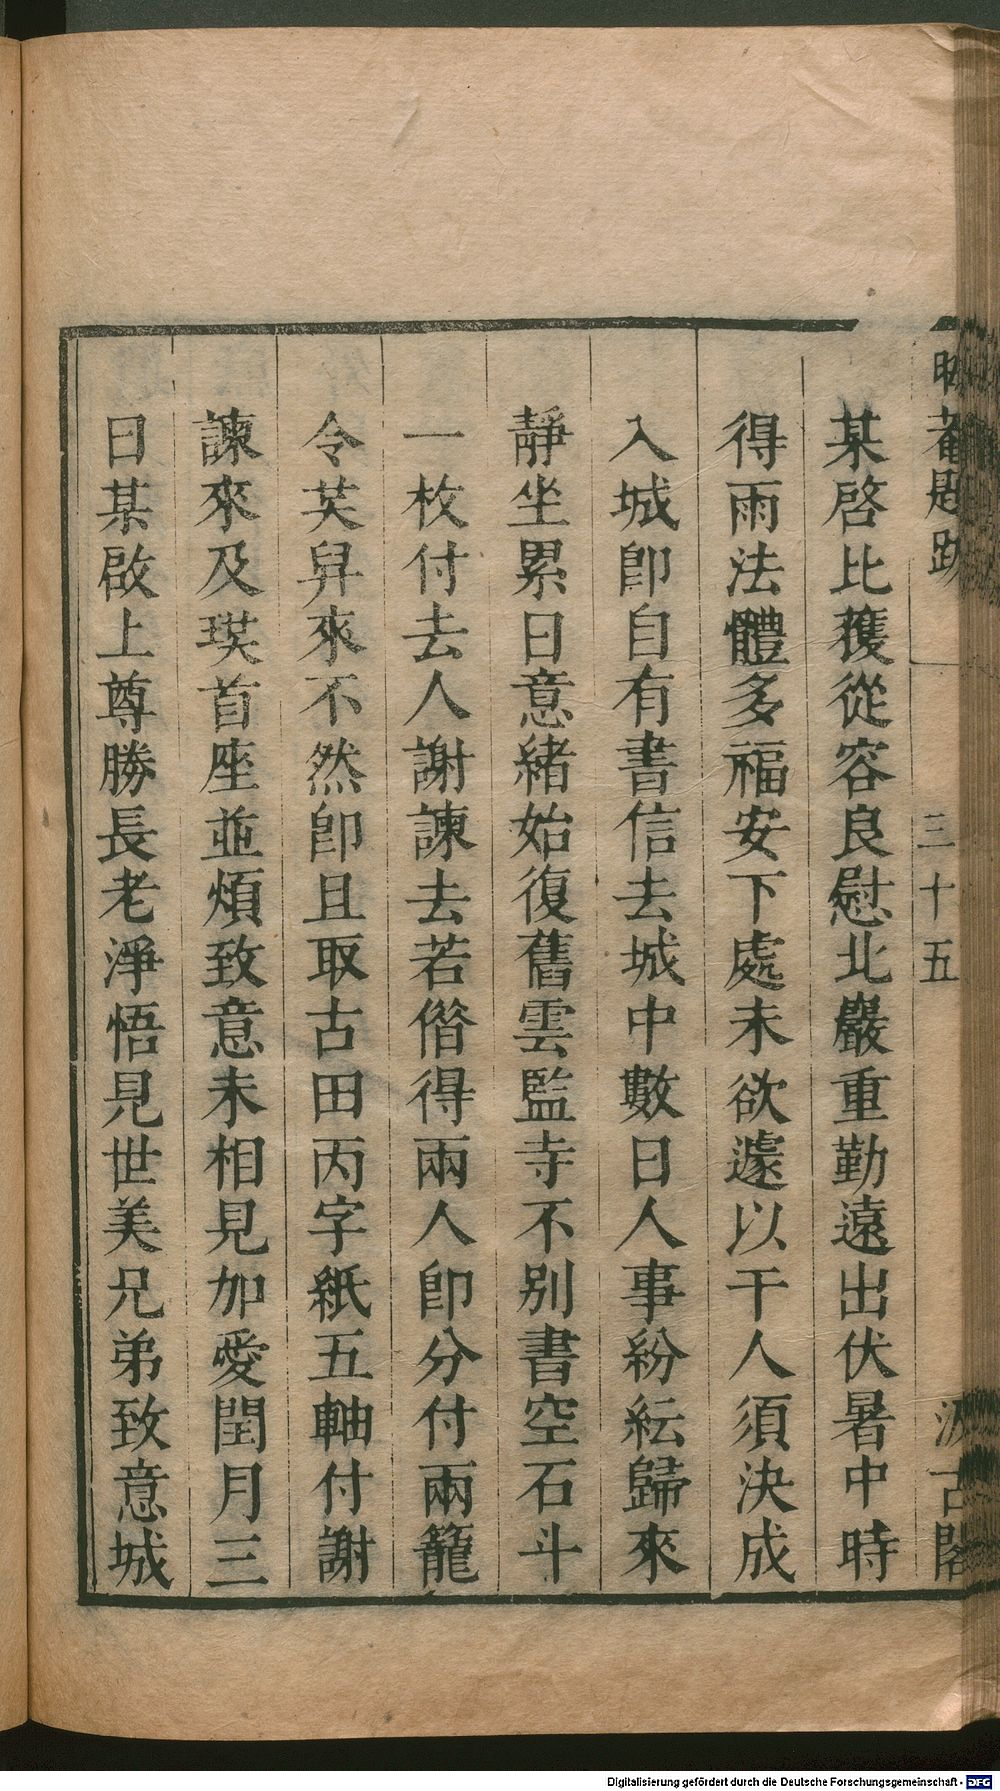 晦菴題跋
三十五
汲古閣
某啓比蒦從容良慰北嚴重勤遠出伏暑中時
得雨法體多福安下處未欲遽以干人須決成
入城卽自有書信去城中數日人事紛紜歸來
靜坐累日意緒始復舊雲監寺不别書空石斗
一枚付去人謝諫去若偕得兩人卽分付兩籠
令芙舁來不然卽且取古田丙字紙五軸付謝
諫來及瑛首座並煩致意未相見加愛閏月三
日某啟上尊勝長老淨悟見世美兄弟致意城
Digitalisierung gefördert durch die Deutsche Forschungsgemeinschaft - DFG